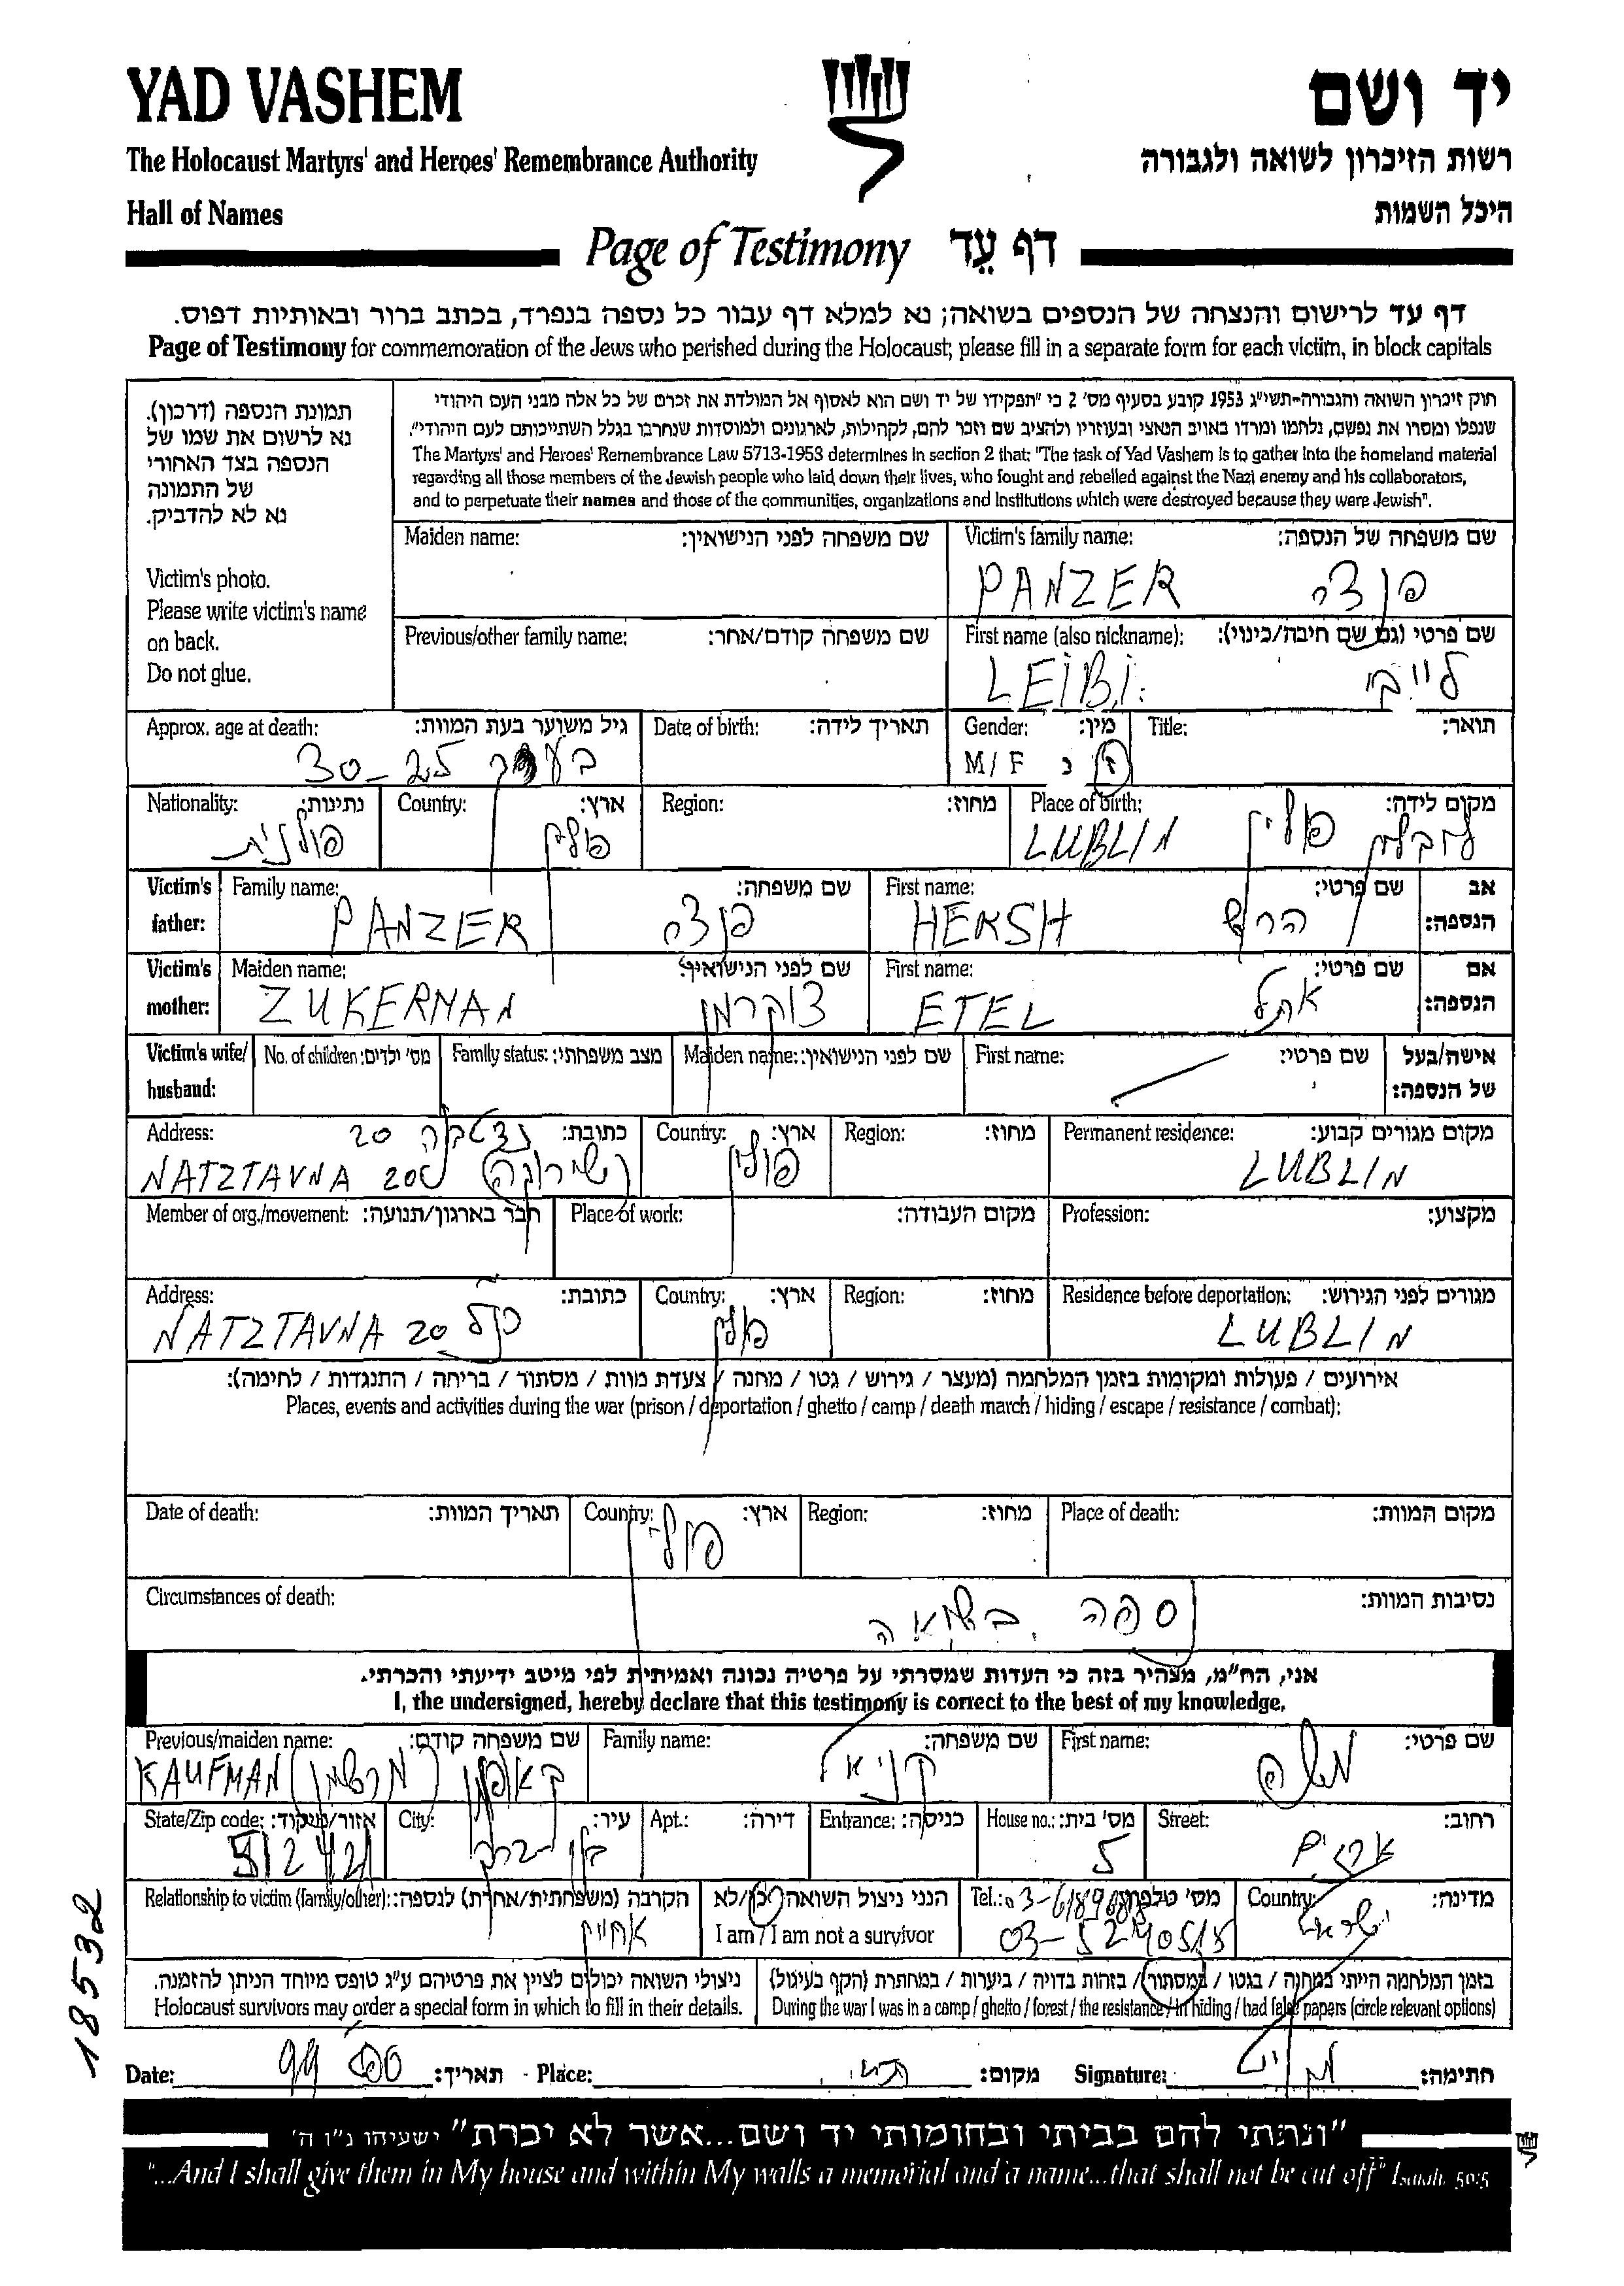 YAD VASHEM
יד ושם
The Holocaust Martyrs' and Heroes' Remembrance Authority
רשות הזיכרון לשואה ולגבורה
Hall of Names
היכל השמות
Page of Testimony דף עֵד
דף עד לרישום והנצחה של הנספים בשואה; נא למלא דף עבור כל נספה בנפרד, בכתב ברור ובאותיות דפוס.
Page of Testimony for commemoration of the Jews who perished during the Holocaust; please fill in a separate form for each victim, in block capitals
תמונת הנספה (דרכון).
נא לרשום את שמו של
הנספה בצד האחורי
של התמונה
נא לא להדביק.
Victim's photo.
Please write victim's name
on back.
Do not glue.
חוק זיכרון השואה והגבורה-תשי"ג 1953 קובע בסעיף מס' 2 כי "תפקידו של יד ושם הוא לאסוף אל המולדת את זכרם של כל אלה מבני העם היהודי
שנפלו ומסרו את נפשם, נלחמו ומרדו באויב הנאצי ובעוזריו ולהציב שם וזכר להם, לקהילות, לארגונים ולמוסדות שנחרבו בגלל השתייכותם לעם היהודי".
The Martyrs' and Heroes' Remembrance Law 5713-1953 determines in section 2 that: "The task of Yad Vashem is to gather into the homeland material
regarding all those members of the Jewish people who laid down their lives, who fought and rebelled against the Nazi enemy and his collaborators,
and to perpetuate their names and those of the communities, organizations and institutions which were destroyed because they were Jewish".
Maiden name: שם משפחה לפני הנישואין: Victim's family name: שם משפחה של הנספה:
PANZER פנצר
Previous/other family name: שם משפחה קודם/אחר: First name (also nickname): שם פרטי (גם שם חיבה/כינוי):
LEIBI. לייבי
Approx. age at death: גיל משוער בעת המוות: Date of birth: תאריך לידה: Gender: מין: Title: תואר:
30 - 25 M/F ז נ
Nationality: נתינות: Country: ארץ: Region: מחוז: Place of birth: מקום לידה:
פולנית פולין LUBLIN פולין לובלין
Victim's father: Family name: שם משפחה: First name: שם פרטי: אב הנספה:
PANZER פנצר HERSH הרש
Victim's mother: Maiden name: שם לפני הנישואין: First name: שם פרטי: אם הנספה:
ZUKERMAN צוקרמן ETEL אתל
Victim's wife/ husband: No. of children: מס' ילדים: Family status: מצב משפחתי: Maiden name: שם לפני הנישואין: First name: שם פרטי: אישה/בעל של הנספה:
Address: כתובת: Country: ארץ: Region: מחוז: Permanent residence: מקום מגורים קבוע:
20
NATZTAVNA 20 פולין LUBLIN
Member of org./movement: חבר בארגון/תנועה: Place of work: מקום העבודה: Profession: מקצוע:
Address: כתובת: Country: ארץ: Region: מחוז: Residence before deportation: מגורים לפני הגירוש:
NATZTAVNA 20 פולין LUBLIN
אירועים / פעולות ומקומות בזמן המלחמה (מעצר / גירוש / גטו / מחנה / צעדת מוות / מסתור / בריחה / התנגדות / לחימה):
Places, events and activities during the war (prison / deportation / ghetto / camp / death march / hiding / escape / resistance / combat):
Date of death: תאריך המוות: Country: ארץ: Region: מחוז: Place of death: מקום המוות:
פולין
Circumstances of death: נסיבות המוות:
נספה בשואה
אני, הח"מ, מצהיר בזה כי העדות שמסרתי על פרטיה נכונה ואמיתית לפי מיטב ידיעתי והכרתי.
I, the undersigned, hereby declare that this testimony is correct to the best of my knowledge.
Previous/maiden name: שם משפחה קודם: Family name: שם משפחה: First name: שם פרטי:
KAUFMAN קאופמן
State/Zip code: אזור/מיקוד: City: עיר: Apt.: דירה: Entrance: כניסה: House no.: מס' בית: Street: רחוב:
בני-ברק 5
Relationship to victim (family/other): הקרבה (משפחתית/אחרת) לנספה: הנני ניצול השואה כן/לא Tel.: מס' טלפון: Country: מדינה:
אחיין I am / I am not a survivor ישראל
ניצולי השואה יכולים לציין את פרטיהם ע"ג טופס מיוחד הניתן להזמנה. בזמן המלחמה הייתי במחנה / בגטו / במסתור / בזהות בדויה / ביערות / במחתרת (הקף בעיגול)
Holocaust survivors may order a special form in which to fill in their details. During the war I was in a camp / ghetto / forest / the resistance / in hiding / had false papers (circle relevant options)
18532
Date: 99 תאריך: Place: מקום: Signature: חתימה:
"ונתתי להם בביתי ובחומותי יד ושם...אשר לא יכרת" ישעיהו נ"ו ה'
"...And I shall give them in My house and within My walls a memorial and a name...that shall not be cut off" Isaiah. 56:5